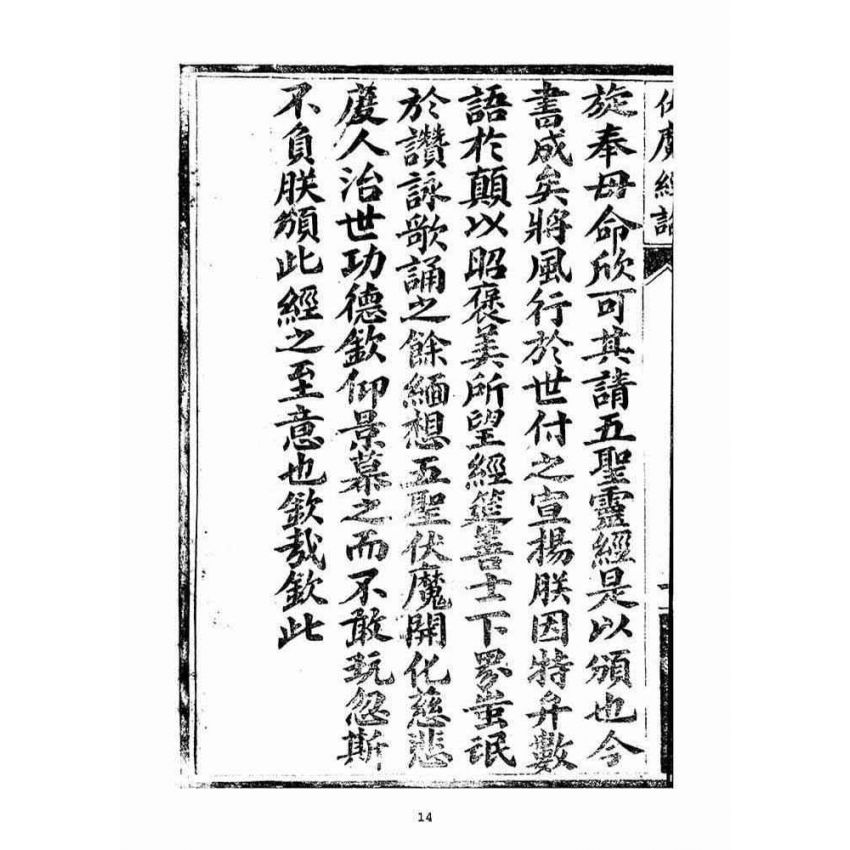 伏魔經誥
旋奉母命欣可其請五聖靈經是以頒也今
書成矣將風行於世付之宣揚朕因特弁數
語於顛以昭褒美所望經筵善士下界蚩氓
於讚詠歌誦之餘緬想五聖伏魔開化慈悲
度人治世功德欽仰景慕之而不敢玩忽斯
不負朕頒此經之至意也欽哉欽此
14